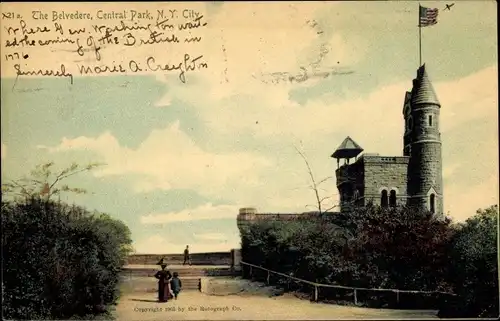 X 21 a. The Belvedere, Central Park, N. Y. City.
Where Gen Washington wait
ed the coming of the British in
1776
Sincerely Marie A. Creighton
Copyright 1905 by the Rotograph Co.